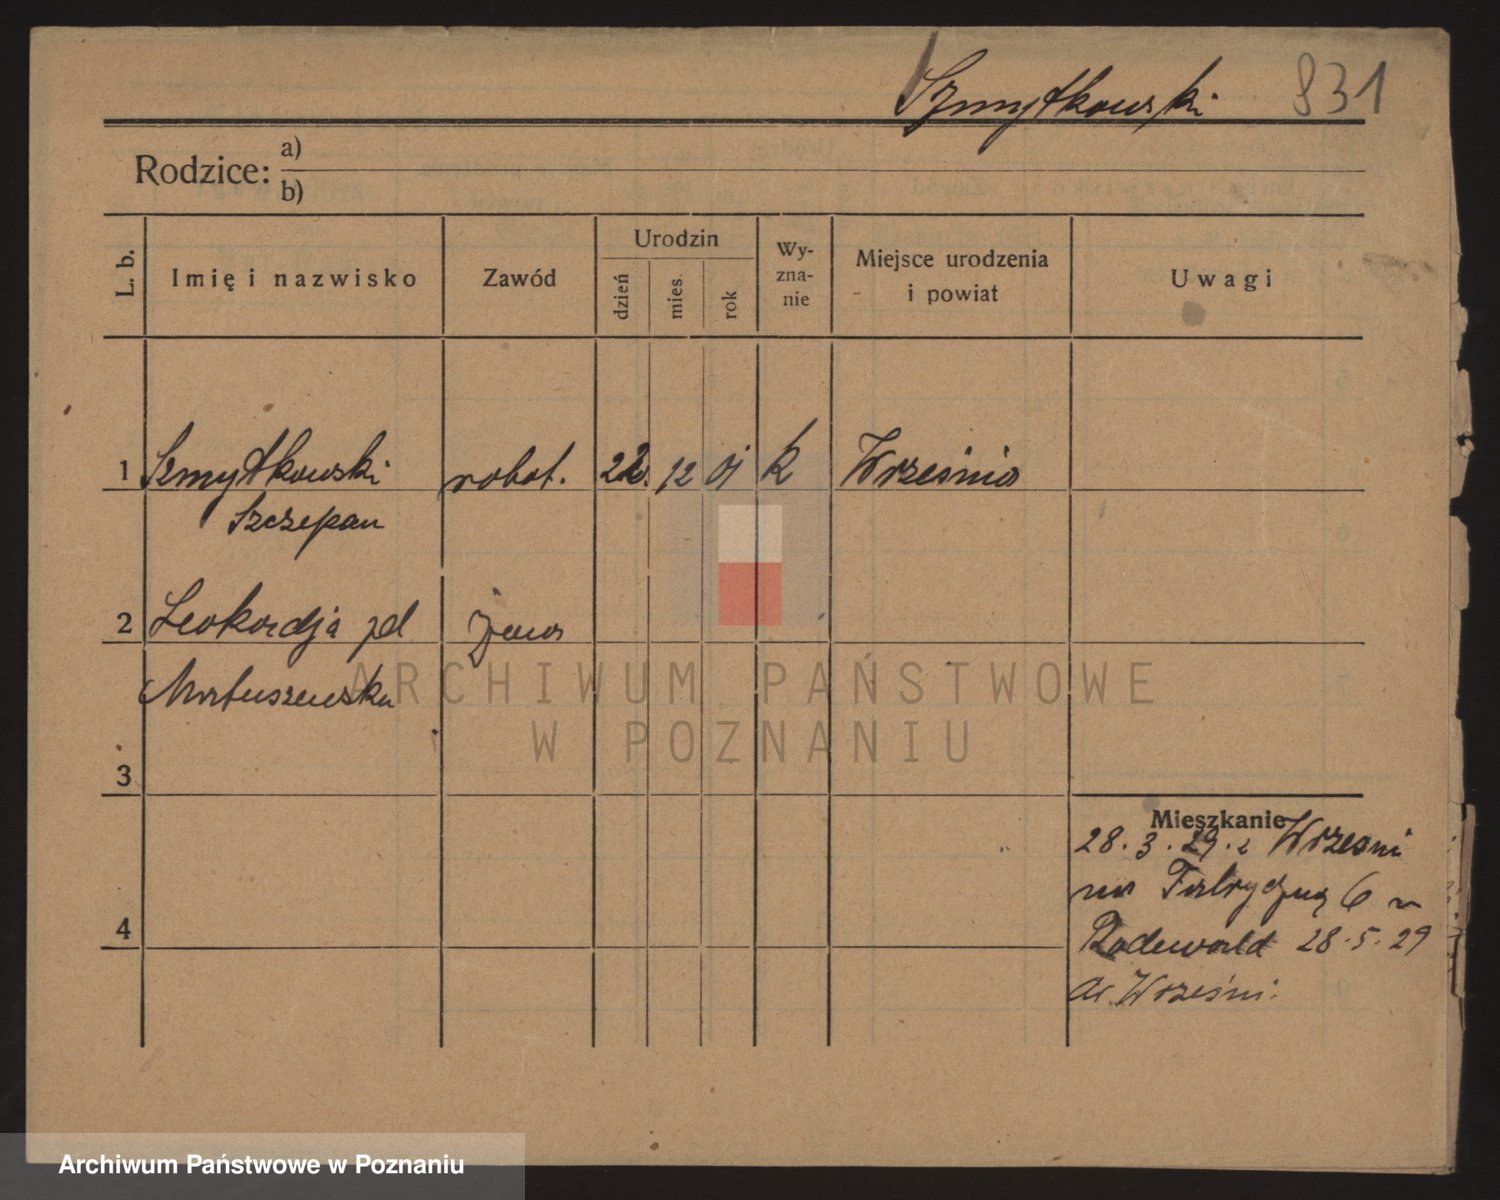 Szmytkowski 831
Rodzice: a)
b)
L. b. Imię i nazwisko Zawód Urodzin dzień mies. rok Wy-zna-nie Miejsce urodzenia i powiat Uwagi
1 Szmytkowski robot. 22. 12 01 k Września
Szczepan
2 Leokardja zd żona
Martuszewska
3
Mieszkanie
28.3.29. z Wrześni
na Fabryczną 6 u
4 Rodewald 28.5.29
do Wrześni.
ARCHIWUM PAŃSTWOWE
W POZNANIU
Archiwum Państwowe w Poznaniu